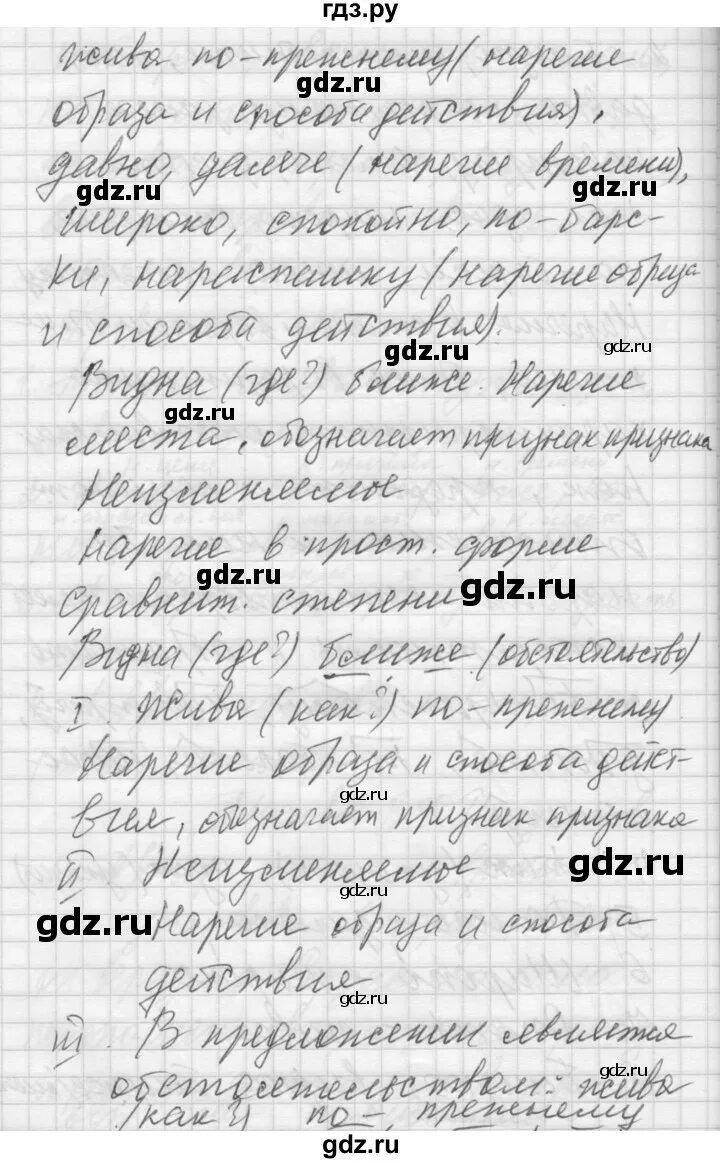 гдз.ру
жива по-прежнему (наречие
образа и способа действия),
gdz.ru gdz.ru
давно, далече (наречие времени),
gdz.ru gdz.ru
широко, спокойно, по-барс-
ки, нараспашку (наречие образа
и способа действия).
gdz.ru gdz.ru
Видна (где?) ближе. Наречие
gdz.ru
места, обозначает признак признака
Неизменяемое
наречие в прост. форме
gdz.ru gdz.ru
сравнит. степени
Видна (где?) ближе (обстоятельство)
I. Жива (как?) по-прежнему.
Наречие образа и способа дейст-
gdz.ru
вия, обозначает признак признака
II. Неизменяемое gdz.ru
gdz.ru
gdz.ru Наречие образа и способа
действия
gdz.ru
III. В предложении является
gdz.ru
обстоятельством: жива
(как?) по-прежнему
gdz.ru